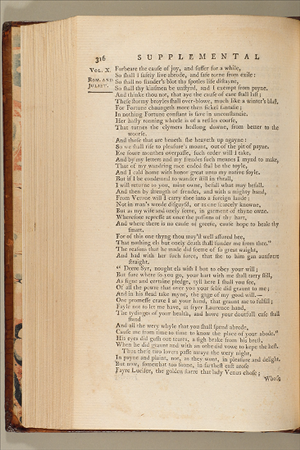 316 SUPPLEMENTAL
VOL. X.
ROM. AND
JULIET.
Forbeare the cause of joy, and suffer for a while,
So shall I safely live abrode, and safe torne from exile:
So shall no slander's blot thy spotles life distayne,
So shall thy kinsmen be unstyrd, and I exempt from payne.
And thinke thou not, that aye the cause of care shall last;
These stormy broyles shall over-blowe, much like a winter's blast.
For Fortune chaungeth more then fickel fantasie;
In nothing Fortune constant is save in unconstancie.
Her hasty ronning wheele is of a restles course,
That turnes the clymers hedlong downe, from better to the
woorse,
And those that are beneth she heaveth up agayne:
So we shall rise to pleasure's mount, out of the pit of payne.
Ere foure monthes overpasse, such order will I take,
And by my letters and my frendes such meanes I mynd to make,
That of my wandring race ended shal be the toyle,
And I cald home with honor great unto my native soyle.
But if I be condemned to wander still in thrall,
I will returne to you, mine owne, befall what may befall.
And then by strength of frendes, and with a mighty hand,
From Verone will I carry thee into a forein lande;
Not in man's weede disguysd, or as one scarcely knowne,
But as my wife and onely feere, in garment of thyne owne.
Wherefore represse at once the passions of thy hart,
And where there is no cause of greefe, cause hope to heale thy
smart.
For of this one thyng thou may'st well assured bee,
That nothing els but onely death shall sunder me from thee."
The reasons that he made did seeme of so great waight,
And had with her such force, that she to him gan aunswere
straight.
"Deere Syr, nought els wish I but to obey your will;
But sure where so you go, your hart with me shall tary still,
As signe and certaine pledge, tyll here I shall you see,
Of all the powre that over you your selfe did graunt to me;
And in his stead take myne, the gage of my good will.—
One promesse crave I at your hand, that graunt me to fulfill;
Fayle not to let me have, at fryer Lawrence hand,
The tydinges of your health, and howe your doutfull case shall
stand.
And all the wery whyle that you shall spend abrode,
Cause me from time to time to know the place of your abode."
His eyes did gush out teares, a sigh brake from his brest,
When he did graunt and with an othe did vowe to kepe the hest.
Thus these two lovers passe awaye the wery night,
In payne and plaint, not, as they wont, in pleasure and delight.
But now, somewhat too soone, in farthest east arose
Fayre Lucifer, the golden starre that lady Venus chose;